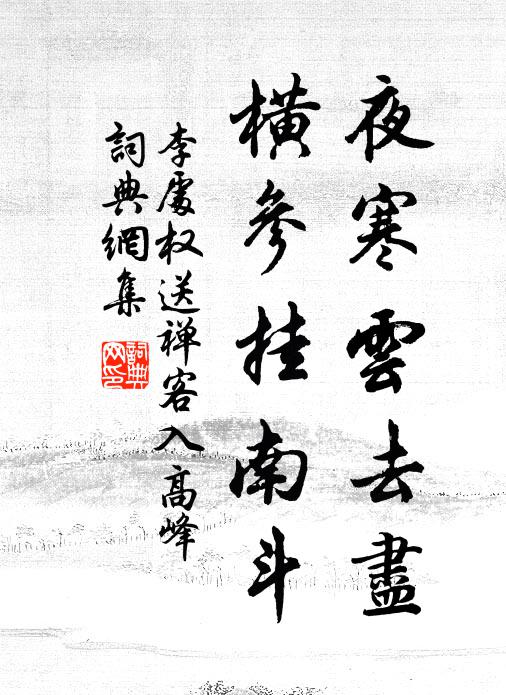 夜寒雲去盡
橫參挂南斗
李處权送禅客入高峰
詞典網集
詞典網印